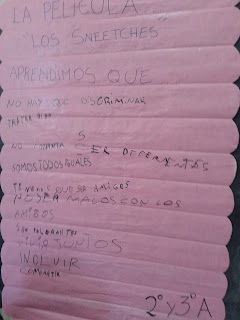 LA PELICULA
LOS SNEETCHES
APRENDIMOS QUE
NO HAY QUE DISCRIMINAR
TRATAR BIEN
NO IMPORTA SER DEFERENTES
SOMOS TODOS IGUALES
TENEMOS QUE SER AMIGOS
NO SER MALOS CON LOS
AMIGOS
SER TOLERANTES
VIVIR JUNTOS
INCLUIR
COMPARTIR
2º y 3º A